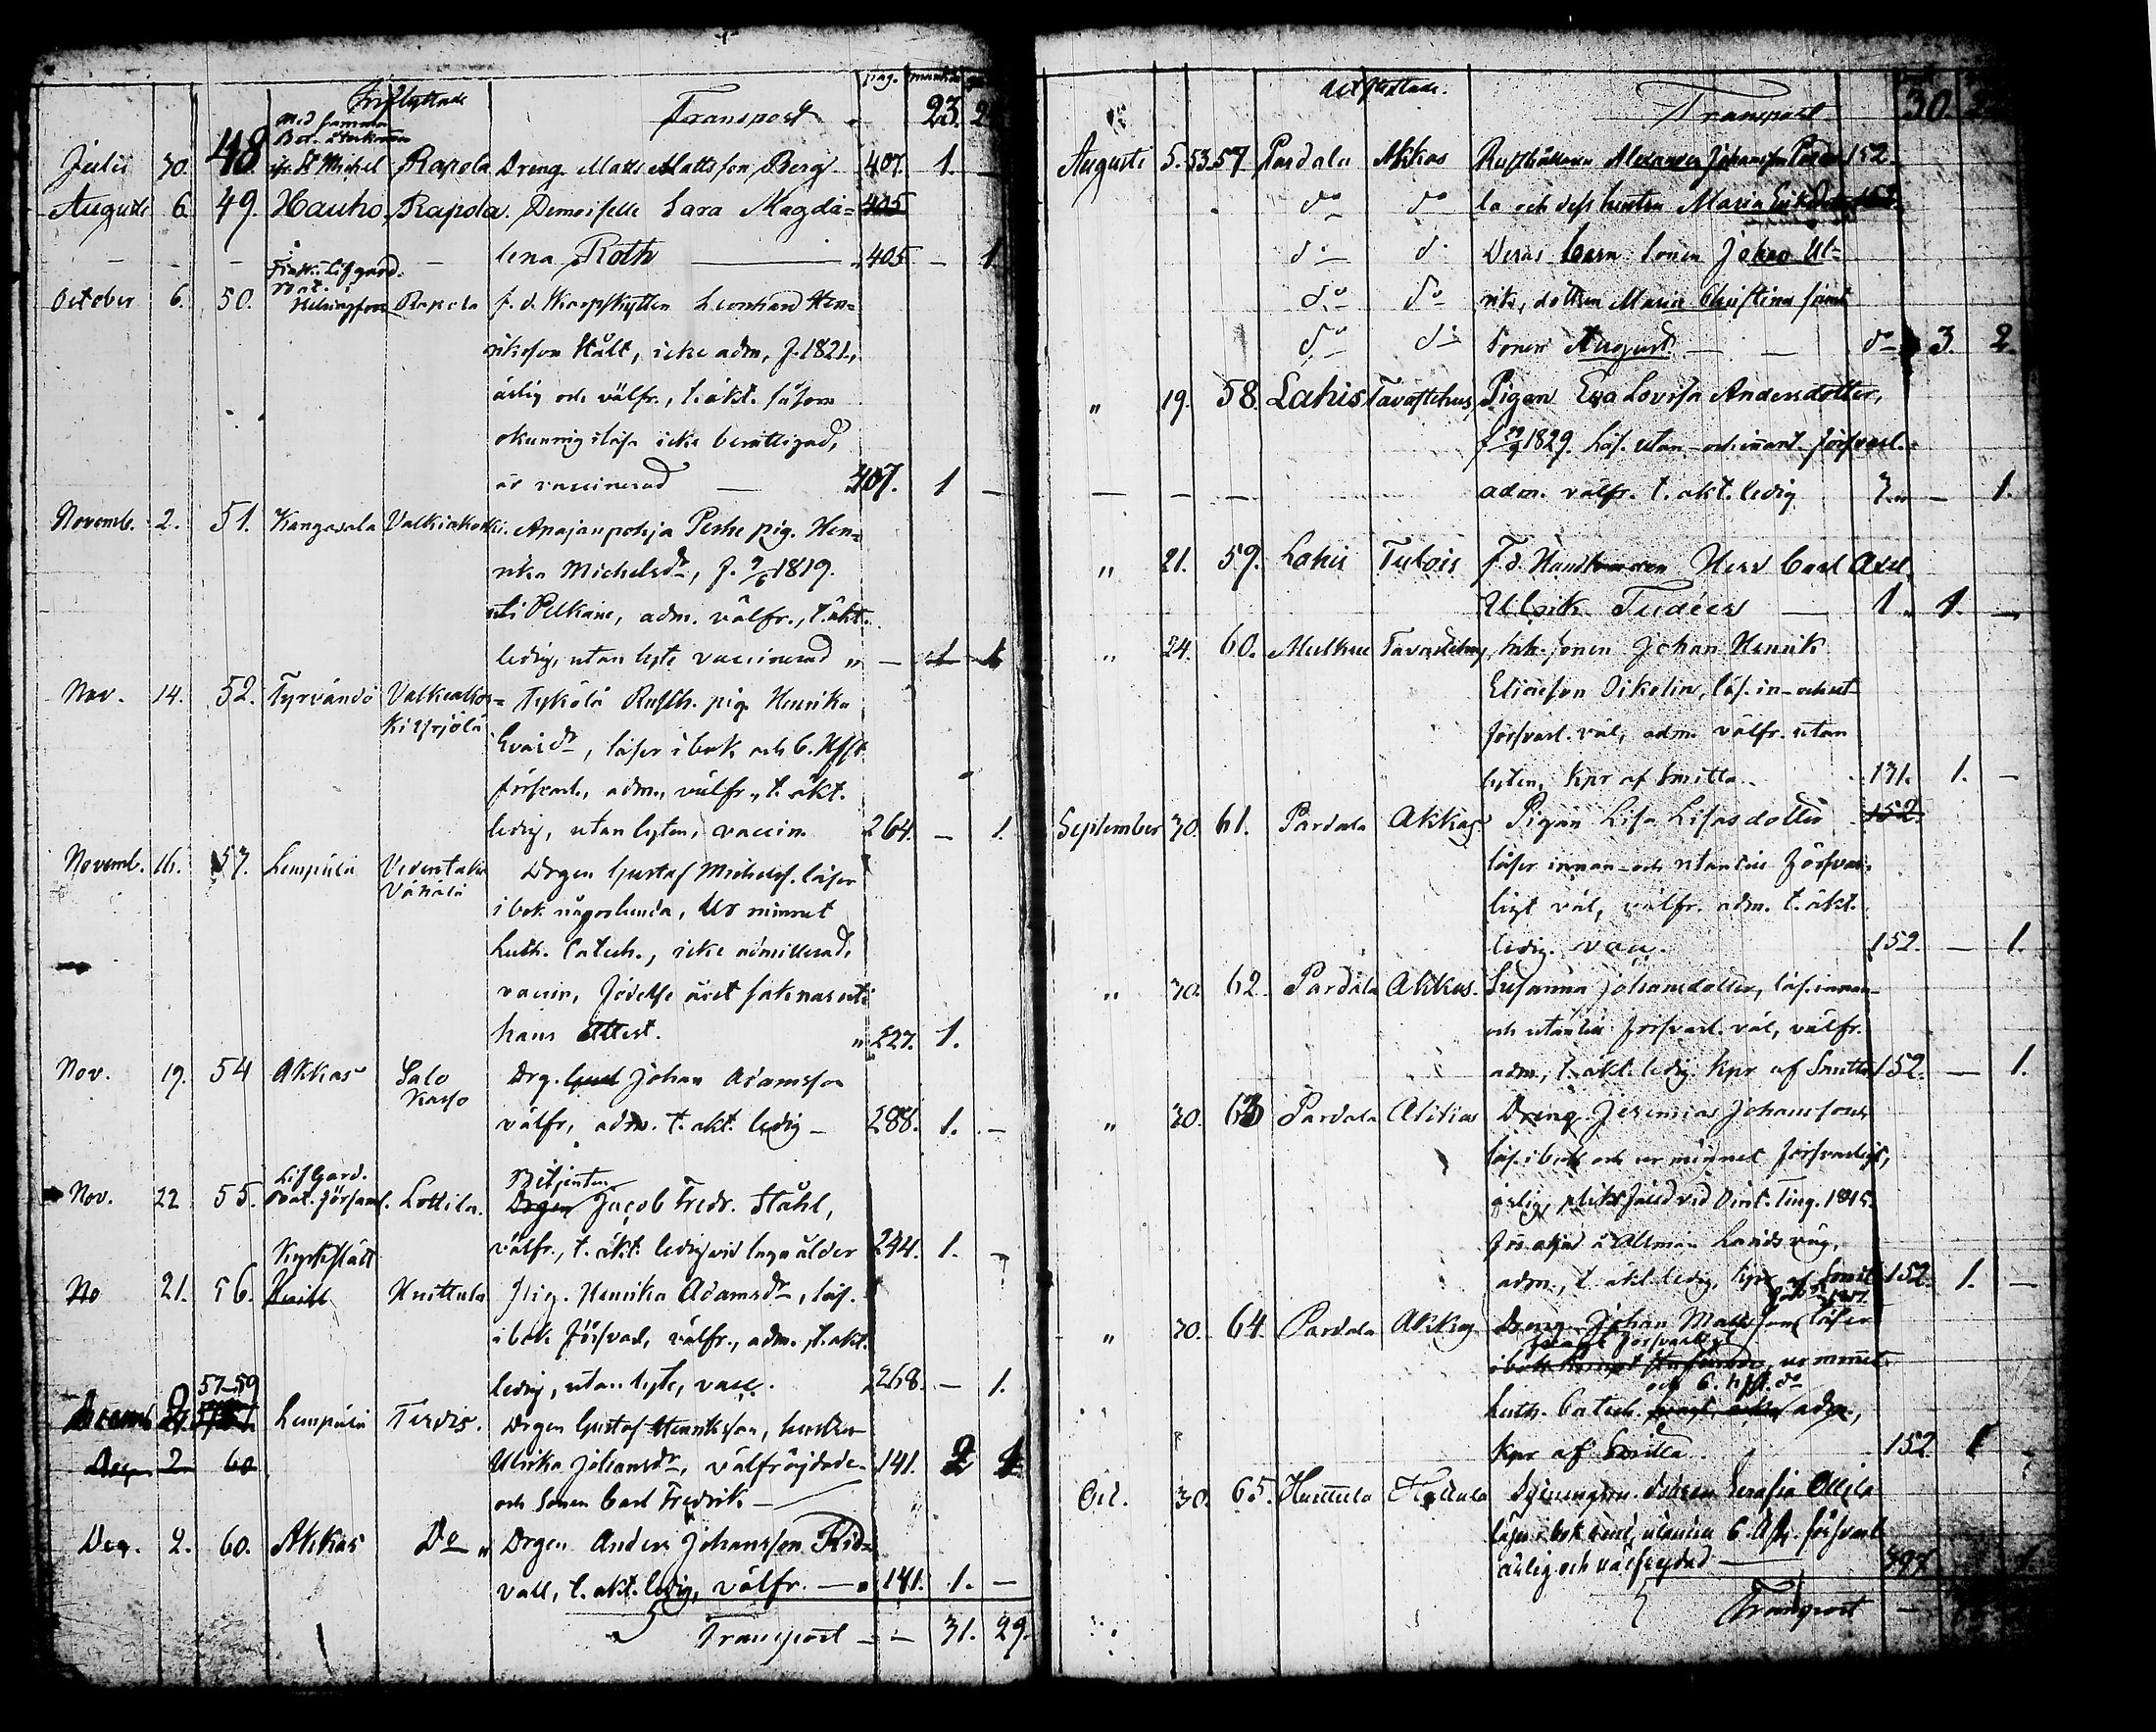 Inflyttade
pag. mankön
Transport 23.
Julii 30. 48. med samma Bet. återkom ifr. St Michel Rapola Dreng Matts Mattsson Berg 407. 1. —
Augusti 6. 49. Hauho Rapola. Demoiselle Sara Magda= 405
lena Roth — 405 — 1.
October 6. 50. Finska Lifgard. Bat. Helsingfors Rapola f. d. Skarpskytten Leonhard Hen=
riksson Stålt, icke adm, f. 1821,
ärlig och välfr., t. äkt. såsom
okunnig i läsn icke berättigad,
är vaccinerad — 407. 1 —
Novemb. 2. 51. Kangasala Valkiakoski. Apajanpohja Peske pig. Hen=
rika Michelsdr, f. 9/6 1819.
uti Pelkäne, adm. välfr., t. äkt.
ledig, utan lyte vaccinerad „ — 1 1
Nov. 14. 52. Tyrvändö Valkeakos= Tykölä Rusth. pig. Henrika
ki Yrjölä
Evasdr, läser i bok och 6. Hfst.
försvarl., adm., välfr., t. äkt.
ledig, utan lyten, vaccin. 264. — 1.
Novemb. 16. 57. Lempälä Vedentaka Drgen Gustaf Michelss. läser
i bok någorlunda, Ur minnet
Luth. Catech., icke admitterad,
vaccin, födelse året saknas uti
hans Attest. „ 227. 1.
Nov. 19. 54 Akkas Salo Drg. Gust Johan Adamsson
välfr, adm. t. äkt. ledig — 288. 1. —
Nov. 22 55. Lif Gard. Bat. församl. Lottila. Betjenten Drgen Jacob Fredr. Ståhl,
välfr., t. äkt. ledig vid laga ålder 244. 1. —
No 21. 56. Kyrkslätt Huittula Pig. Henrika Adamsdr, läs.
i bok försvarl, välfr., adm., t. äkt.
ledig, utan lyte, vacc. 268. — 1.
57-59
Lempälä Terois. Drgen Gustaf Henriksson, hustrun
Dec. 2. 60 Ulrika Johansdr, välfräjdade 141. 2 1
och Sonen Carl Fredrik —
Dec. 2. 60. Akkas Do „ Drgen Anders Johansson Rid=
vall, t. äkt. ledig, välfr. — 141. 1. —
Transport — 31. 29.
utflyttade.
Transport 30.
Augusti 5. 53.57. Pardala Akkas Rusthållaren Alexander Johansson Parda= 152.
do do la och dess hustru Maria Eriksdotter 152.
do do Deras barn Sonen Johan Ul=
do do rik, dottren Maria Christina samt
do do Sonen August — — do 3. 2.
„ 19. 58. Lahis Tavastehus, Pigan Eva Lovisa Andersdotter,
1829. Läs. utan- och innant. försvarl.=
— — — adm. välfr. t. äkt. ledig 7. „ — 1.
„ 21. 59. Lahis Tulois F. d. Handlanden Herr Carl Axel
Ulrik Tudeer — 1. „ 1. —
„ 24. 60. Mälkiä Tavastehus, Enk. sonen Johan Henrik
Ericsson Oikelin, läs. in- och ut-
försvarl. väl, adm. välfr. utan
lyten, kpr af Smitta. 131. 1. —
September 30. 61. Pardala Akkas Pigan Lisa Lisasdotter 152.
läser innan- och utantin försvar-
ligt väl, välfr. adm. t. äkt.
ledig. vacc. 152. — 1.
„ 30. 62. Pardala Akkas. Susanna Johansdotter, läs. innan-
och utantin försvarl. väl, välfr.
adm., t. äkt. ledig. kpr af Smitta 152. — 1.
„ 30. 63 Pardala Akkas Dreng Jeremias Johansson
läs. i bok och ur minnet försvarligt,
ärlig, pliktfälld vid Vint. Ting. 1845.
för åkjad å Allmän Landsväg,
adm., t. äkt. ledig, kpr af Smitt. 152. 1. —
„ 30. 64. Pardala Akkas Dreng Johan Mattsson läser
svagt försvarligt
i bok ur minnet
och 6. hfst. do
Luth. Catech. adm,
kpr af Smitta. 152 1 —
Oct. 30. 65. Huittula Hattula dottren Serafia Ollila
läser i bok samt utantin 6. Hfst. försvarl
ärlig och välfreydad — 397 1.
Transport —